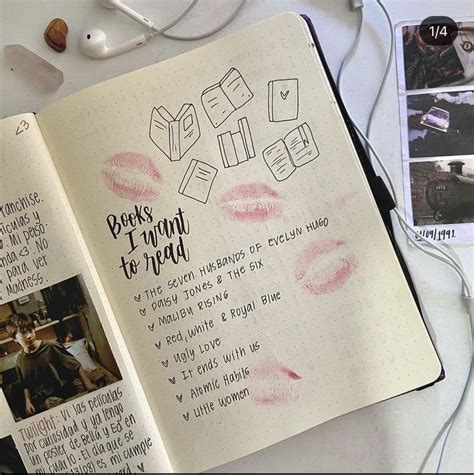 1/4
<3
ranchise.
ículas y
mi perso-
enda <3. No
para ver
Madness.
Twilight: Vi las películas
por curiosidad y ya tengo
un poster de Bella y Ed en
mi cuarto. El día que se
es mi cumple
Books
I want
to read
THE SEVEN HUSBANDS OF EVELYN HUGO
DAISY JONES & THE SIX
MALIBU RISING
Red, White & Royal Blue
Ugly Love
It ends with us
Atomic Habits
Little Women
/09/1991